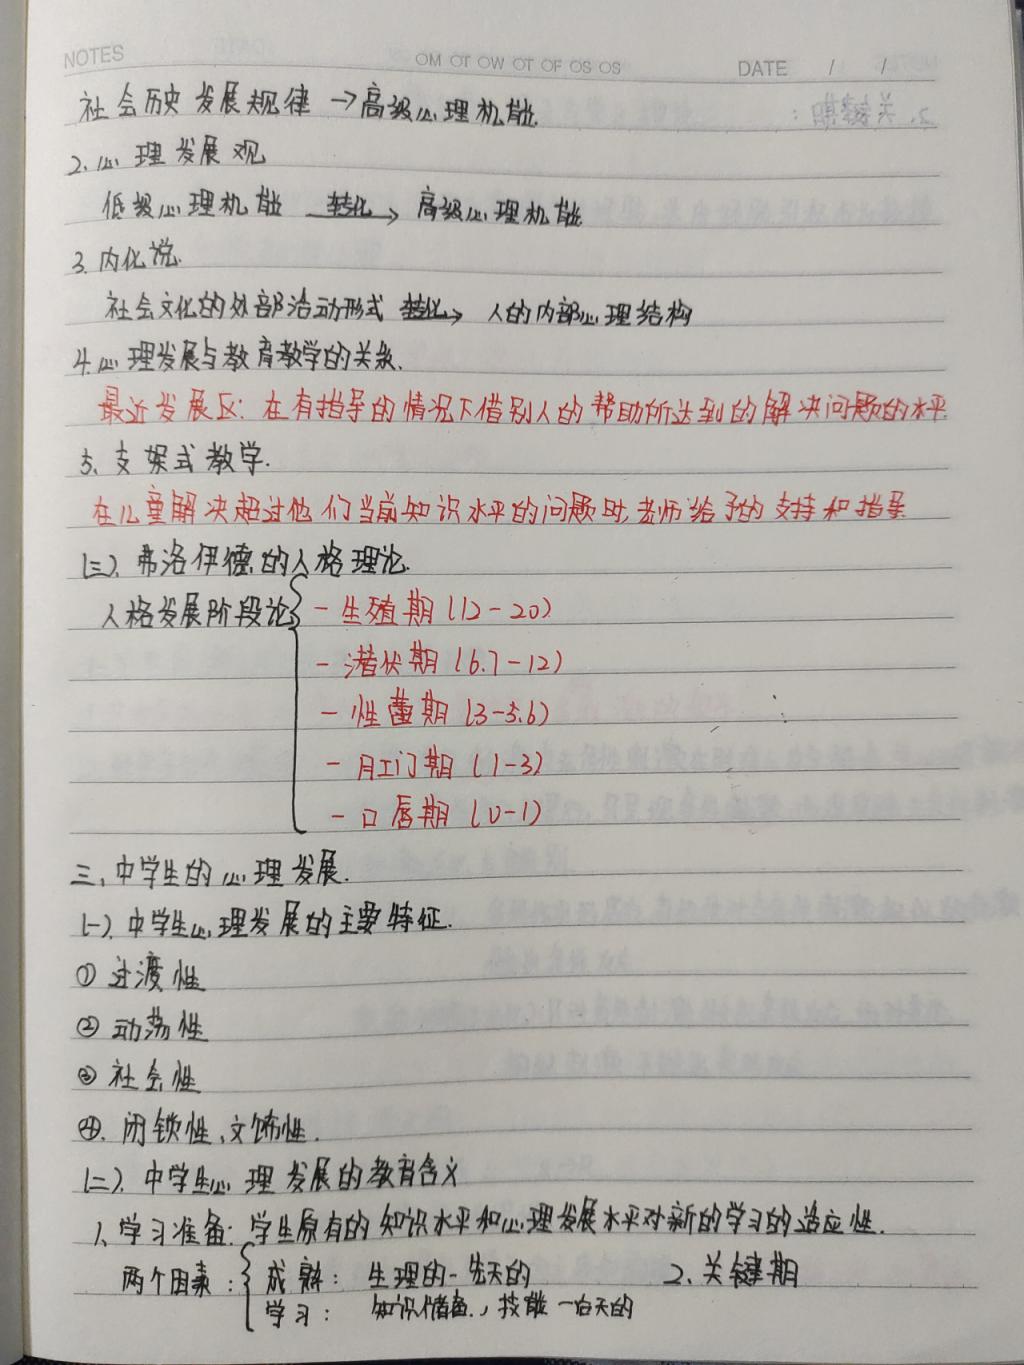 NOTES OM OT OW OT OF OS OS DATE / /
社会历史发展规律 → 高级心理机能
2. 心理发展观
低级心理机能 转化→ 高级心理机能
3. 内化说.
社会文化的外部活动形式 转化→ 人的内部心理结构
4. 心理发展与教育教学的关系.
最近发展区: 在有指导的情况下借别人的帮助所达到的解决问题的水平
5、支架式教学.
在儿童解决超过他们当前知识水平的问题时, 老师给予的支持和指导
(三). 弗洛伊德的人格理论.
人格发展阶段论
- 生殖期 (12-20)
- 潜伏期 (6.7-12)
- 性蕾期 (3-5.6)
- 肛门期 (1-3)
- 口唇期 (0-1)
三、中学生的心理发展.
(一). 中学生心理发展的主要特征.
① 过渡性
② 动荡性
③ 社会性
④. 闭锁性、文饰性.
(二). 中学生心理发展的教育含义
1、学习准备: 学生原有的知识水平和心理发展水平对新的学习的适应性.
两个因素: 成熟: 生理的-先天的 2、关键期
学习: 知识储备、技能-后天的